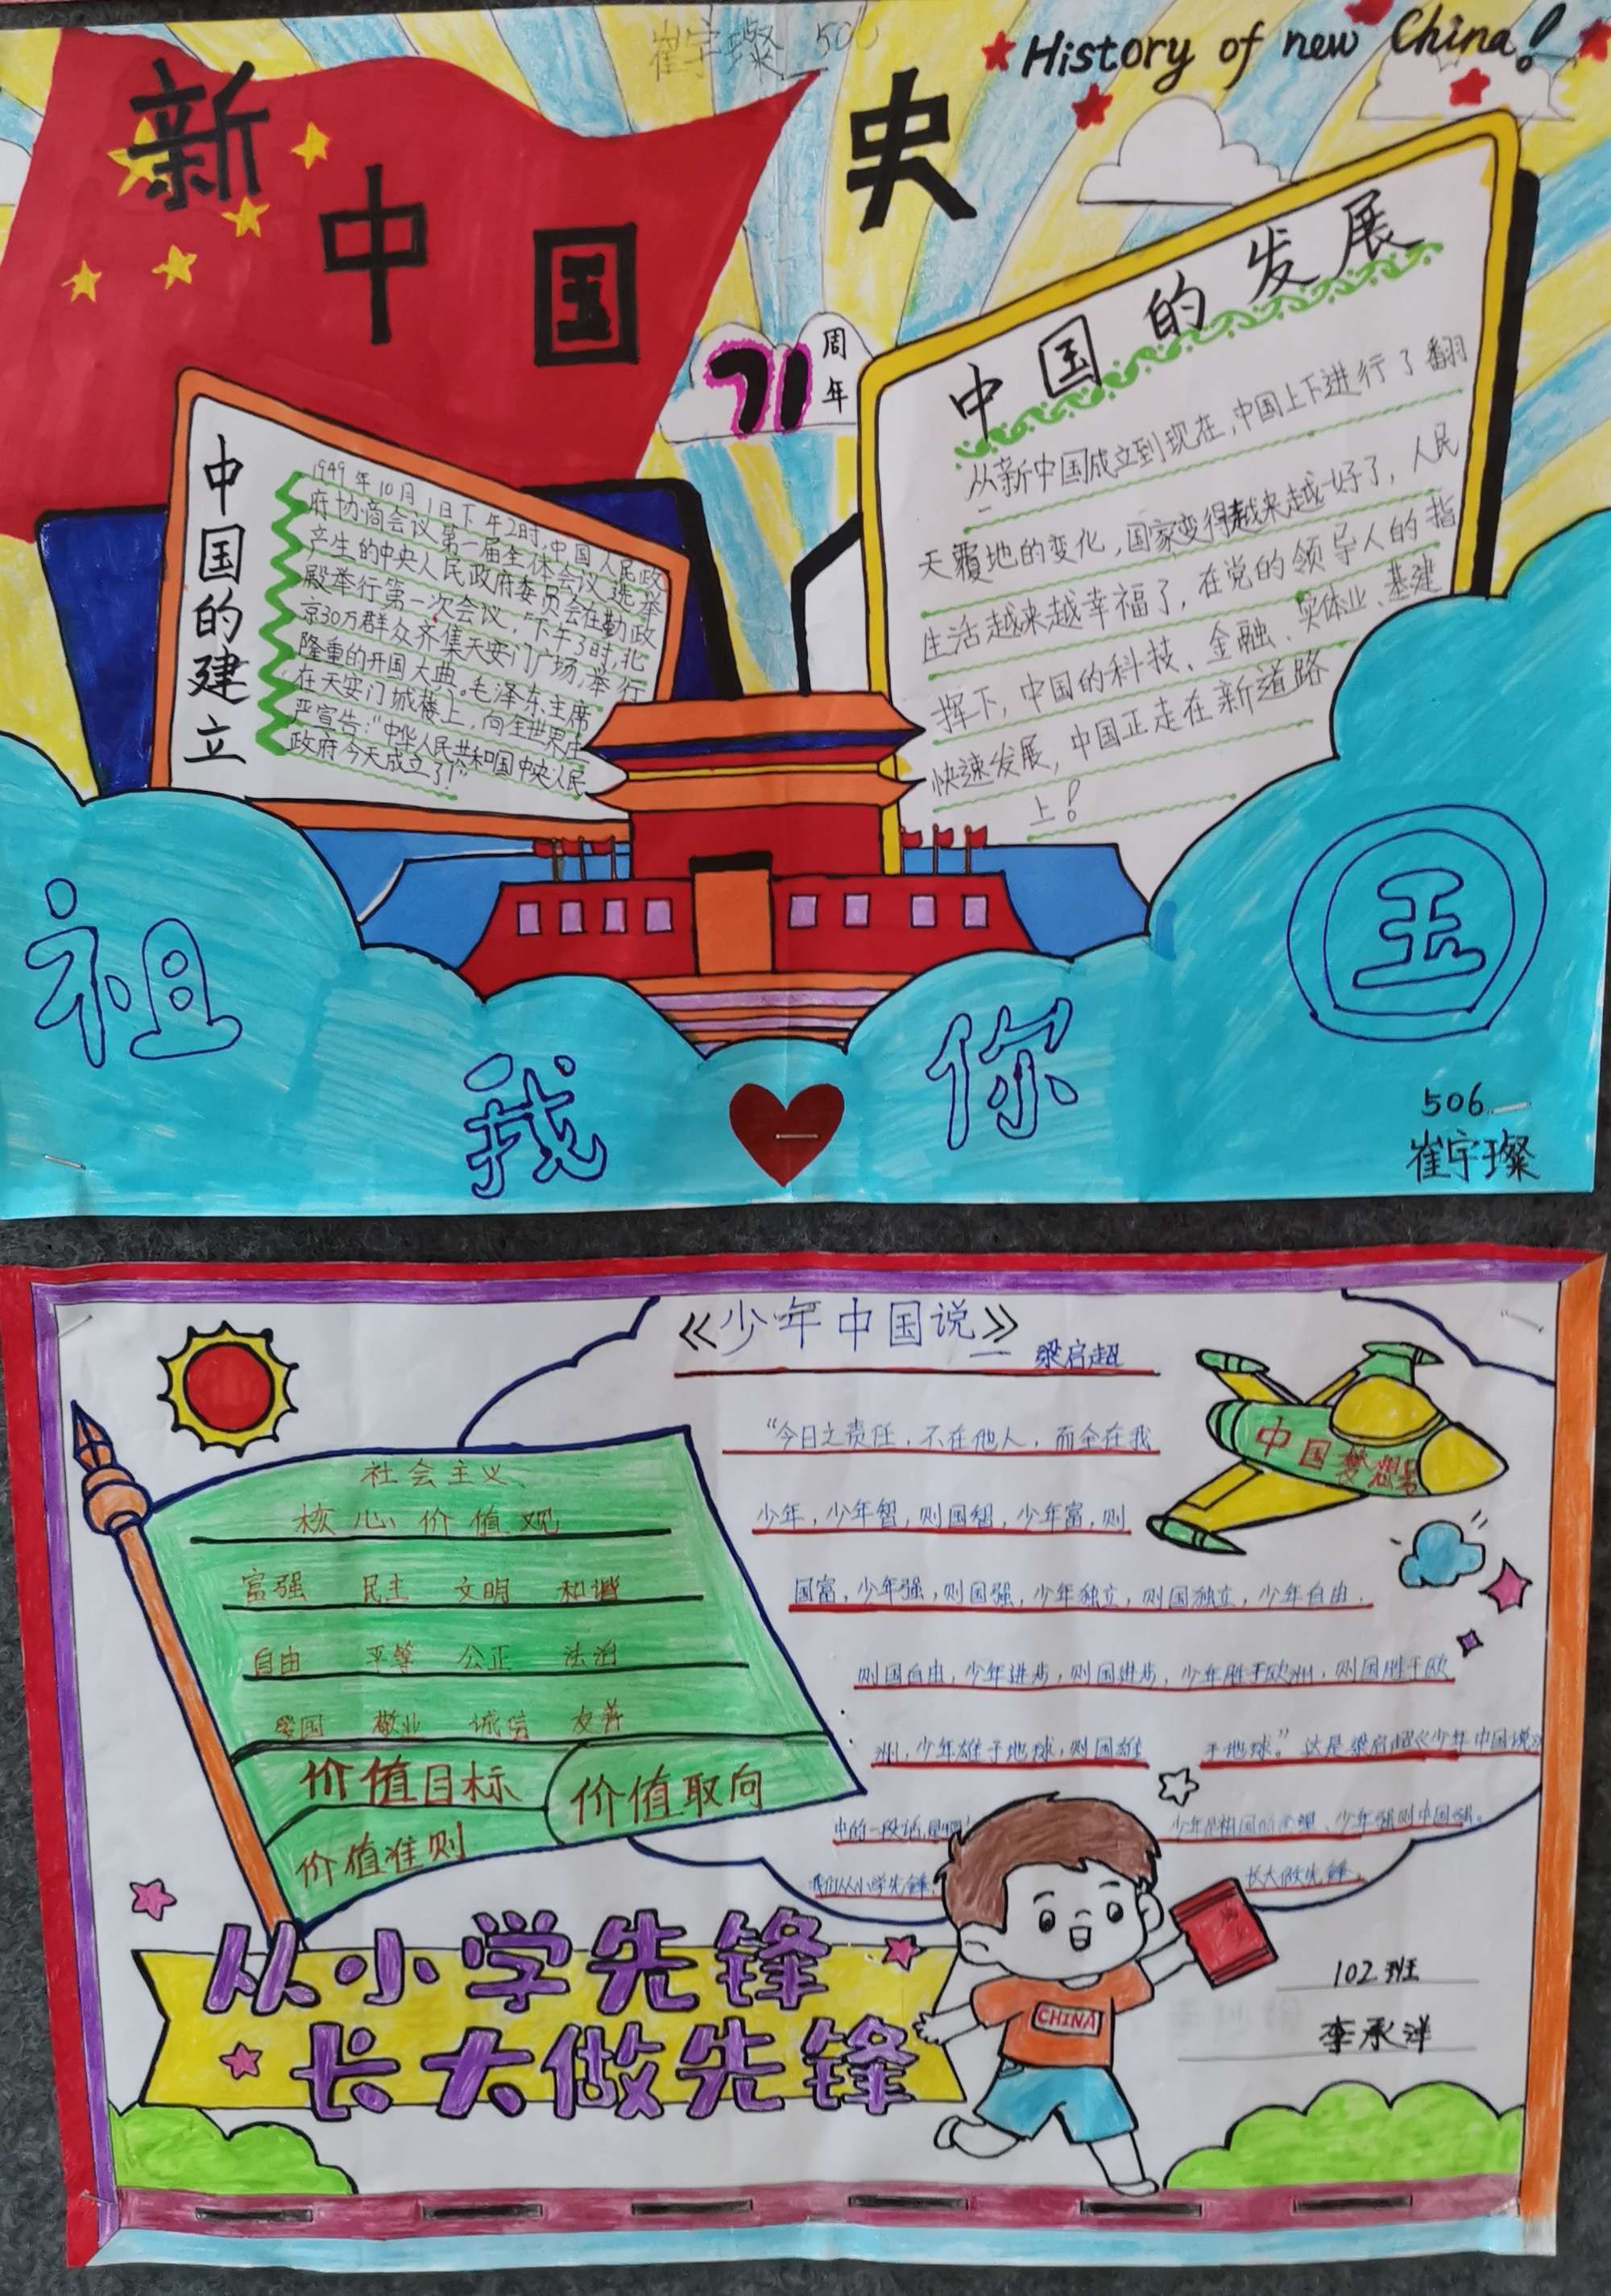 崔宇璨 506
History of new China!
新中国史
71周年
中国的建立
1949年10月1日下午2时,中国人民政
府协商会议第一届全体会议选举
产生的中央人民政府委员会在勤政
殿举行第一次会议,下午3时,北
京30万群众齐集天安门广场,举行
隆重的开国大典。毛泽东主席
在天安门城楼上,向全世界庄
严宣告:“中华人民共和国中央人民
政府今天成立了!”
中国的发展
从新中国成立到现在,中国上下进行了翻
天覆地的变化,国家变得越来越好了,人民
生活越来越幸福了,在党的领导人的指
挥下,中国的科技、金融、实体业、基建
快速发展,中国正走在新道路
上!
祖国
我你
506
崔宇璨
《少年中国说》
梁启超
“今日之责任,不在他人,而全在我
少年,少年智,则国智,少年富,则
国富,少年强,则国强,少年独立,则国独立,少年自由,
则国自由,少年进步,则国进步,少年胜于欧洲,则国胜于欧
洲,少年雄于地球,则国雄于地球。”这是梁启超《少年中国说》
中的一段话,少年是祖国的希望、少年强则中国强。
我们从小学先锋,长大做先锋。
中国梦想号
社会主义
核心价值观
富强 民主 文明 和谐
自由 平等 公正 法治
爱国 敬业 诚信 友善
价值目标
价值取向
价值准则
从小学先锋
长大做先锋
CHINA
102班
李承洋